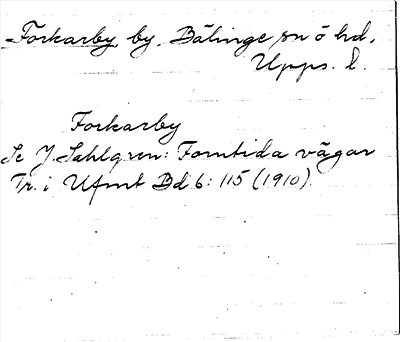 Forkarby, by, Bälinge sn ö hd,
Upps. l.
Forkarby
Se J. Sahlgren: Forntida vägar
Tr. i Ufmt Bd 6: 115 (1910).